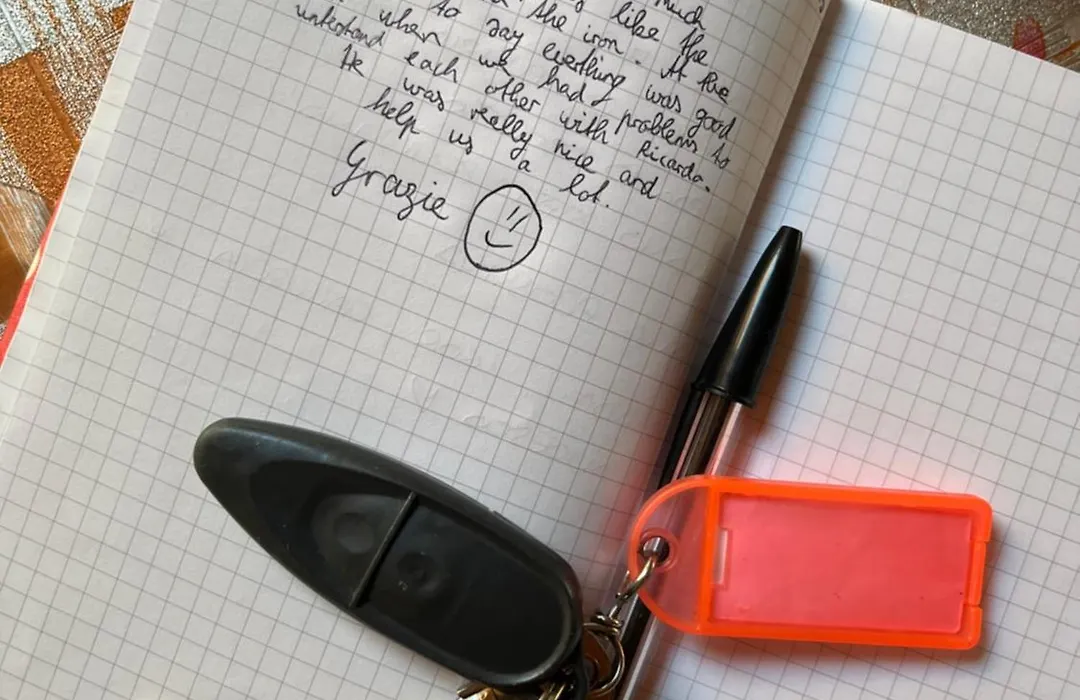 much
like the
the iron. At the
to say everthing was good
when we had problems to
unterstand each other with Ricardo.
He was really nice and
help us a lot.
Grazie